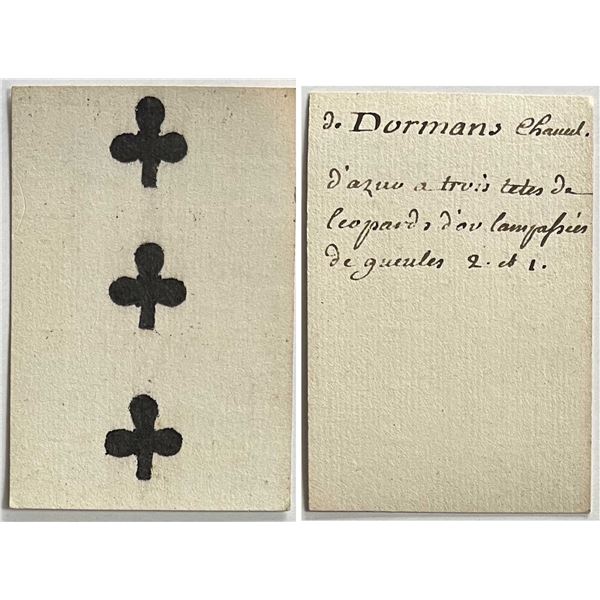 de Dormans Chancel.
d'azur a trois tetes de
leopards d'or lampassées
de gueules 2. et 1.